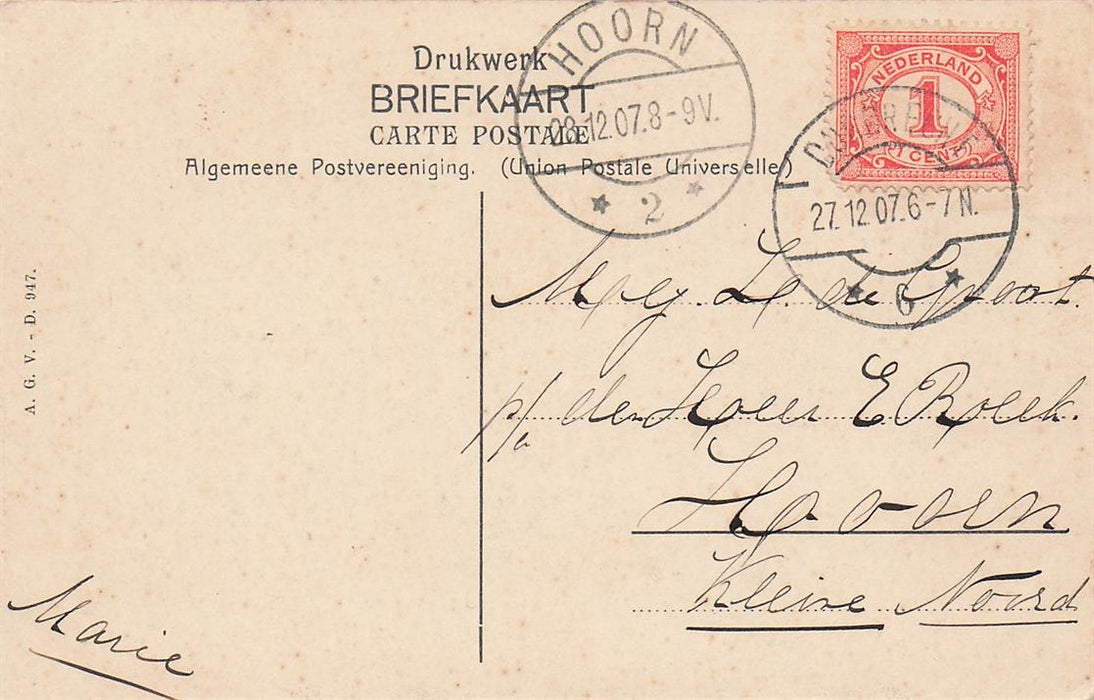 Drukwerk
BRIEFKAART
CARTE POSTALE
Algemeene Postvereeniging. (Union Postale Universelle)
HOORN
12.07.8-9V.
2
NEDERLAND
1
CENT
27.12.07.6-7N.
6
A. G. V. - D. 947.
Mej. L. de Groot.
p/a den Heer E Roeek.
Hoorn
Kleine Noord
Marie